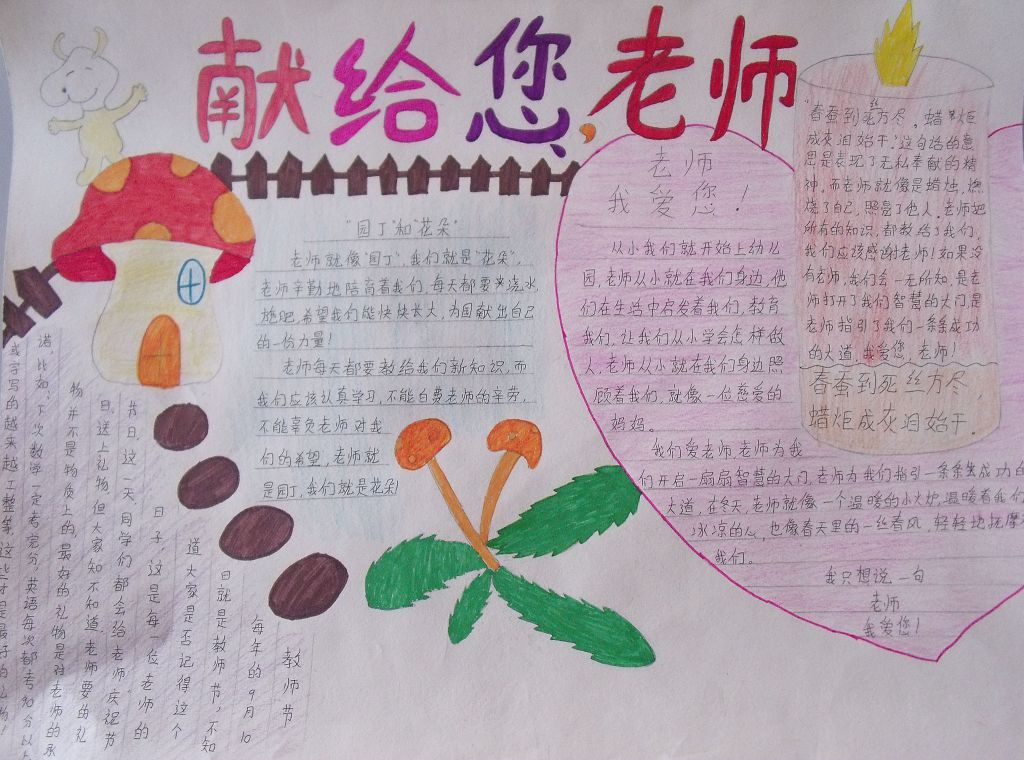 献给您,老师
"园丁"和"花朵"
老师就像"园丁",我们就是"花朵",
老师辛勤地陪育着我们,每天都要来浇水,
施肥,希望我们能快快长大,为国献出自己
的一份力量!
老师每天都要教给我们新知识,而
我们应该认真学习,不能白费老师的辛劳,
不能辜负老师对我
们的希望,老师就
是园丁,我们就是花朵!
老师
我爱您!
从小我们就开始上幼儿
园,老师从小就在我们身边,他
们在生活中启发着我们,教育
我们,让我们从小学会怎样做
人,老师从小就在我们身边照
顾着我们,就像一位慈爱的
妈妈。
我们爱老师,老师为我
们开启一扇扇智慧的大门,老师为我们指引一条条成功的
大道,在冬天,老师就像一个温暖的小火炉,温暖着我们
冰凉的心,也像春天里的一丝春风,轻轻地抚摩
我们。
我只想说一句
老师
我爱您!
"春蚕到死丝方尽,蜡炬
成灰泪始干."这句话的意
思是表现了无私奉献的精
神.而老师就像是蜡烛,燃
烧了自己,照亮了他人.老师把
所有的知识,都教给了我们,
我们应该感谢老师!如果没
有老师,我们会一无所知,是老
师打开了我们智慧的大门,是
老师指引了我们一条条成功
的大道,我爱您,老师!
春蚕到死丝方尽,
蜡炬成灰泪始干.
教师节
每年的9月10
日就是教师节,不知
道大家是否记得这个
日子,这是每一位老师的
节日,这一天同学们都会给老师庆祝节
日,送上礼物,但大家知不知道,老师要的礼
物并不是物质上的,最好的礼物是对老师的承
诺,比如,下次数学一定考分,英语每次都考90分以上
或字写的越来越工整等,这些才是最好的礼物!